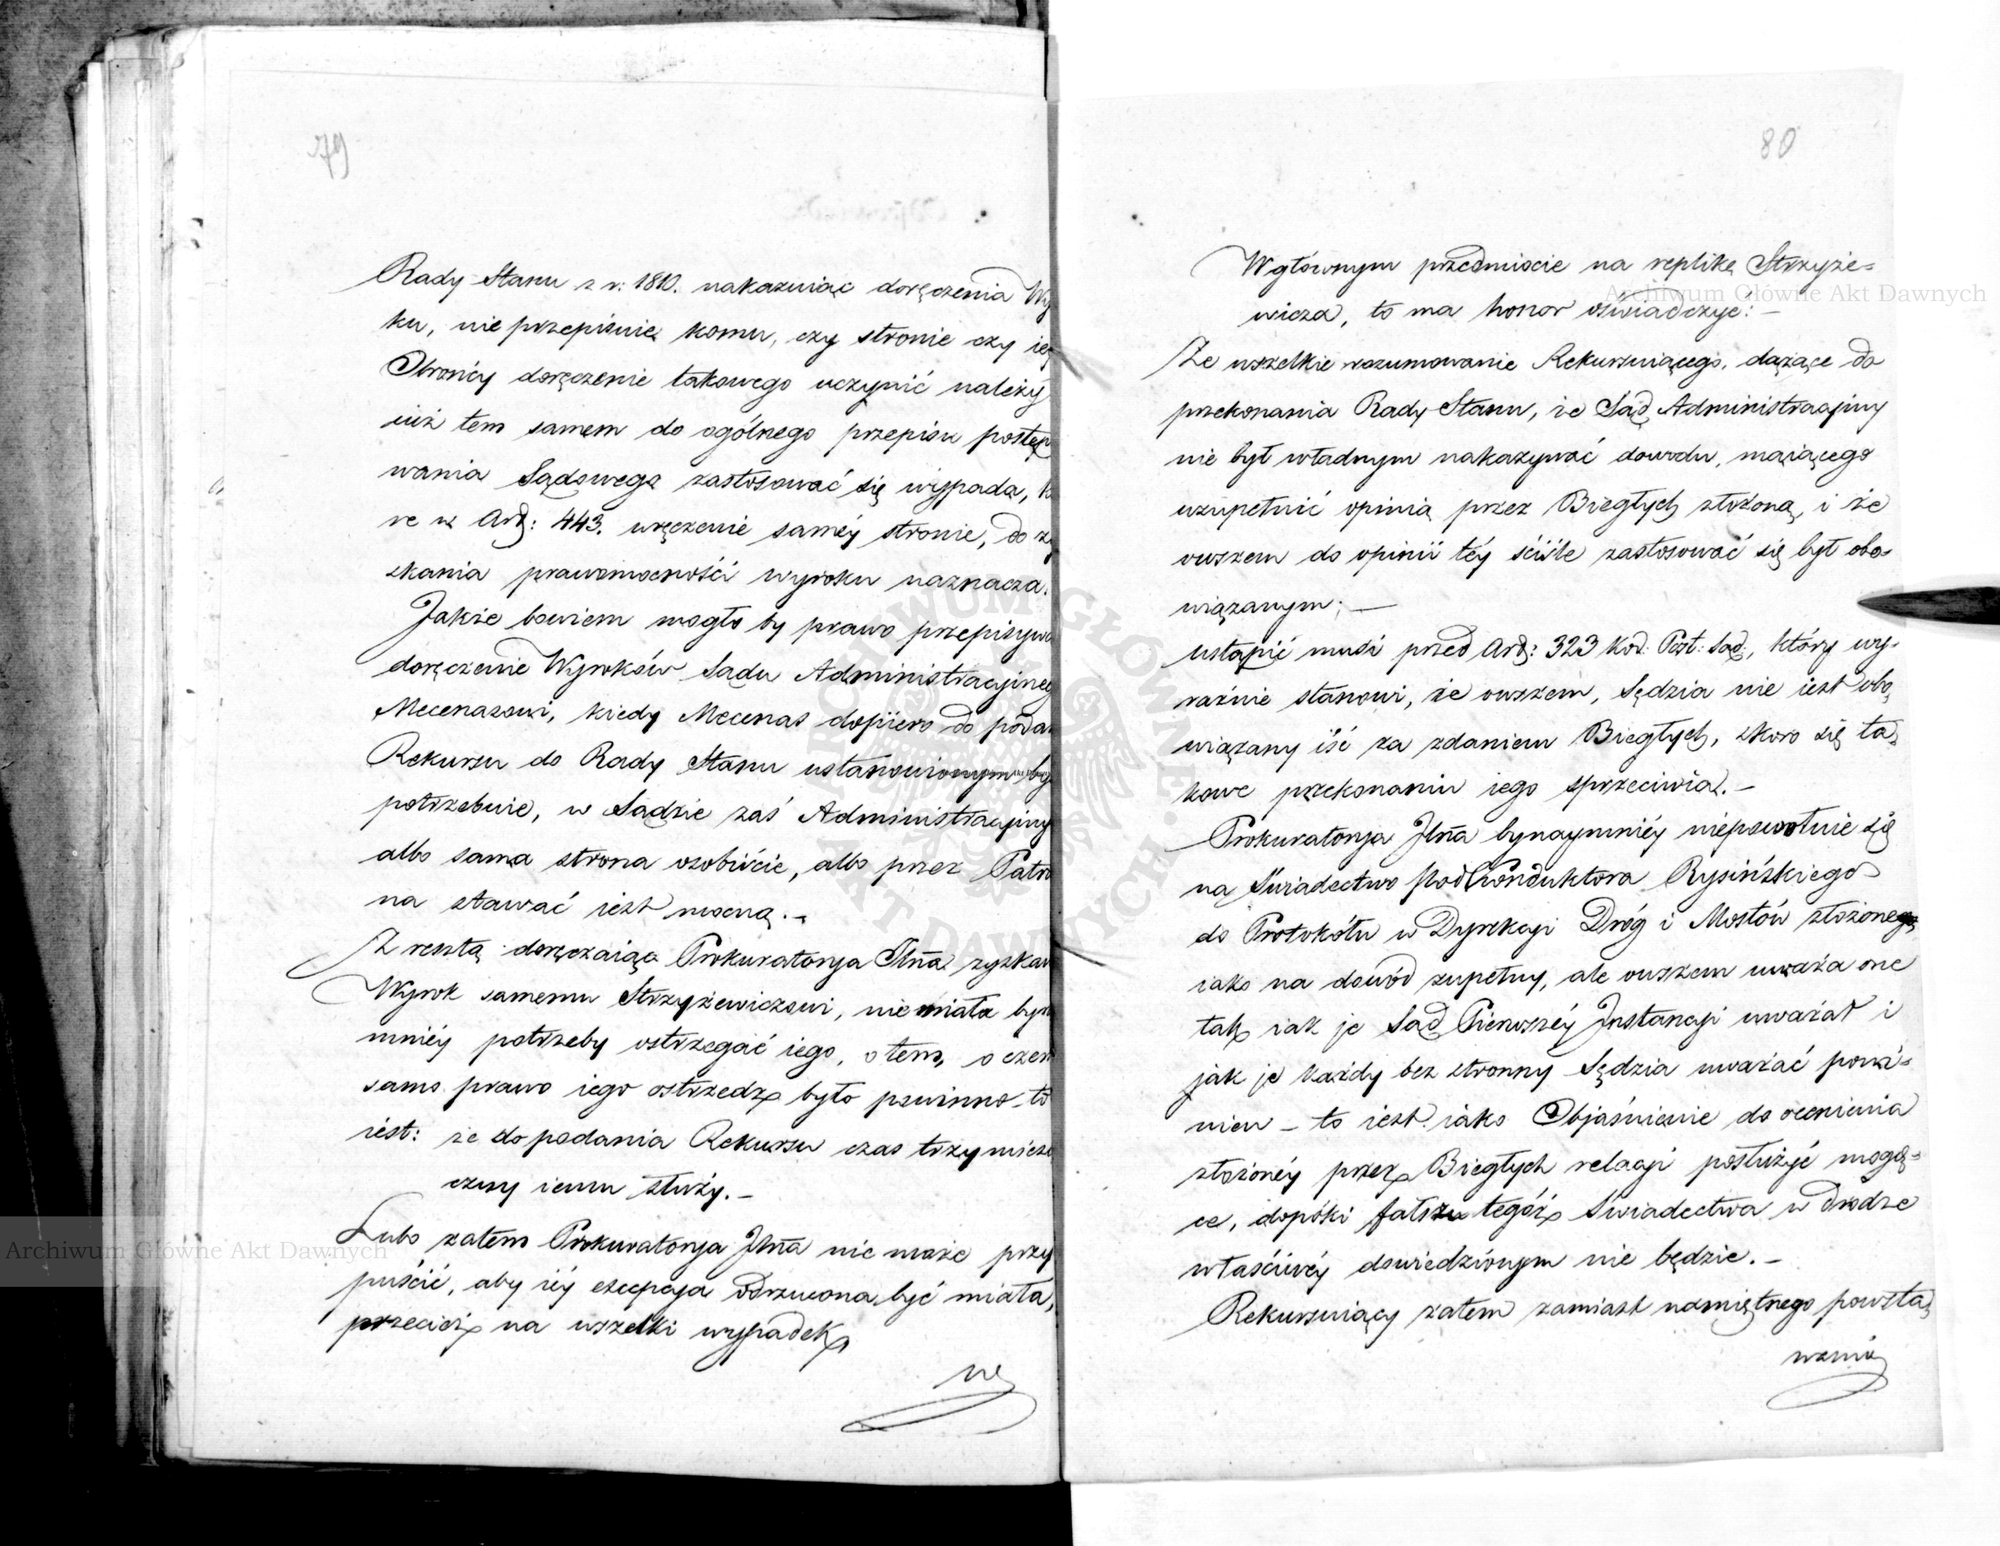 79
Rady Stanu z r: 1810. nakazuiąc doręczenia Wy
ku, nie przepisuie komu, czy stronie czy iey
Obrońcy doręczenie takowego uczynić należy
iuż tem samem do ogólnego przepisu postęp
wania Sądowego zastosować się wypada, k
re w Art: 443. wręczenie saméy stronie, do zy
skania prawomocności wyroku naznacza.
Jakże bowiem mogło by prawo przepisywa
doręczenie Wyroków Sądu Administracyineg
Mecenasowi, kiedy Mecenas dopiero do poda
Rekursu do Rady Stanu ustanowionym by
potrzebuie, w Sądzie zaś Administracyiny
albo sama strona osobiście, albo przez Patro
na stawać iest mocną. –
Z resztą doręczaiąc Prokuratorya Jlna zyskan
Wyrok samemu Strzyżewiczowi, nie miała byn
mniéy potrzeby ostrzegać iego, o tem, o czem
samo prawo iego ostrzedz było powinno to
iest: że do podania Rekursu czas trzymiesię
czny iemu służy. –
Lubo zatem Prokuratorya Jlna nie może przy
puścić, aby iéy excepcya odrzuconą być miała,
przecież na wszelki wypadek
w
80
W głównym przedmiocie na replikę Strzyże=
wicza, to ma honor oświadczyć: –
Że wszelkie rozumowanie Rekursuiącego, dążące do
przekonania Rady Stanu, że Sąd Administracyiny
nie był władnym nakazywać dowodu, maiącego
uzupełnić opinią przez Biegłych złożoną, i że
owszem do opinii téy ściśle zastosować się był obo-
wiązanym; —
ustąpić musi przed Art: 323 Kod: Post: Sąd:, który wy-
raźnie stanowi, że owszem, Sędzia nie iest obo
wiązany iść za zdaniem Biegłych, skoro się ta
kowe przekonaniu iego sprzeciwia. –
Prokuratorya Jlna bynaymniéy niepowołuie się
na Świadectwo PodKonduktora Rysińskiego
do Protokółu w Dyrekcyi Dróg i Mostów złożonego
iako na dowód zupełny, ale owszem uważa one
tak iak je Sąd Pierwszéy Instancyi uważał i
jak je każdy bez stronny Sędzia uważać powi-
nien – to iest iako Objaśnienie do ocenienia
złożonéy przez Biegłych relacyi posłużyć mogą-
ce, dopóki fałsz tegóż Świadectwa w drodze
właściwéy dowiedzionym nie będzie. –
Rekursuiący zatem zamiast namiętnego powsta
wania